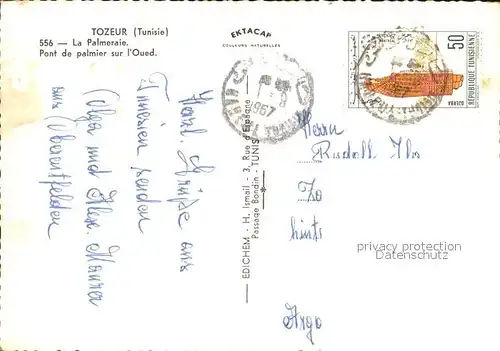 TOZEUR (Tunisie)
556 — La Palmeraie,
Pont de palmier sur l'Oued.
EKTACAP
COULEURS NATURELLES
Herzl. Grüße aus
Tunesien senden
Olga und Alex. Maurer
aus Oberentfelden
EDICHEM - H. Ismail - 3, Rue d'Espagne
Passage Bondin - TUNIS
1967
50
REPUBLIQUE TUNISIENNE
Herrn
Rudolf
Zo
hint
Argo
privacy protection
Datenschutz